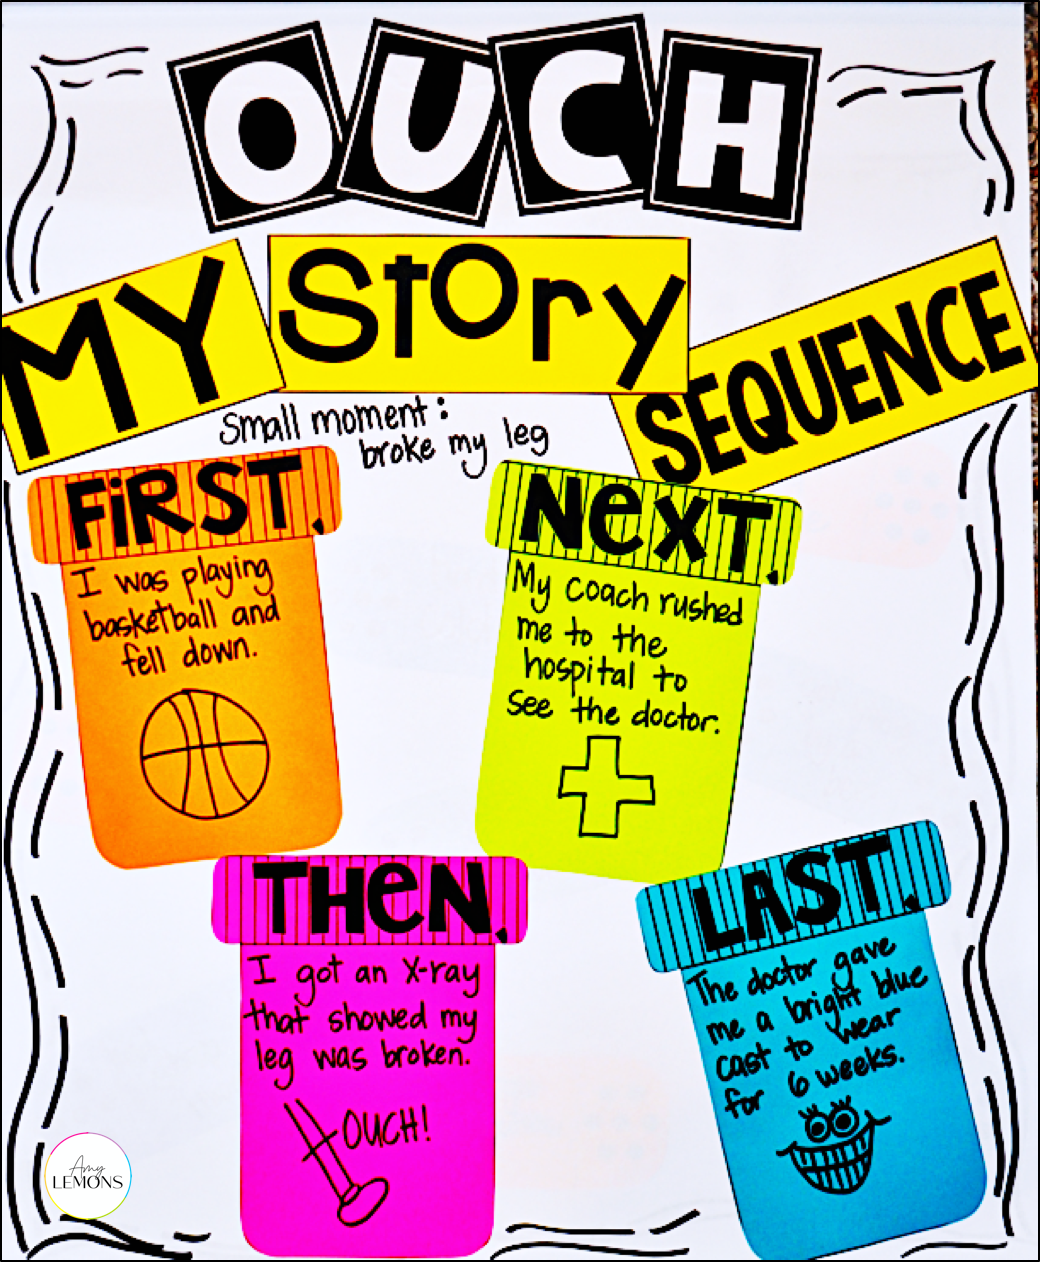 OUCH
MY StOry SEQUENCE
Small moment:
broke my leg
FiRST,
I was playing
basketball and
fell down.
NexT,
My coach rushed
me to the
hospital to
see the doctor.
THeN,
I got an X-ray
that showed my
leg was broken.
OUCH!
LAST,
The doctor gave
me a bright blue
cast to wear
for 6 weeks.
Amy
LEMONS